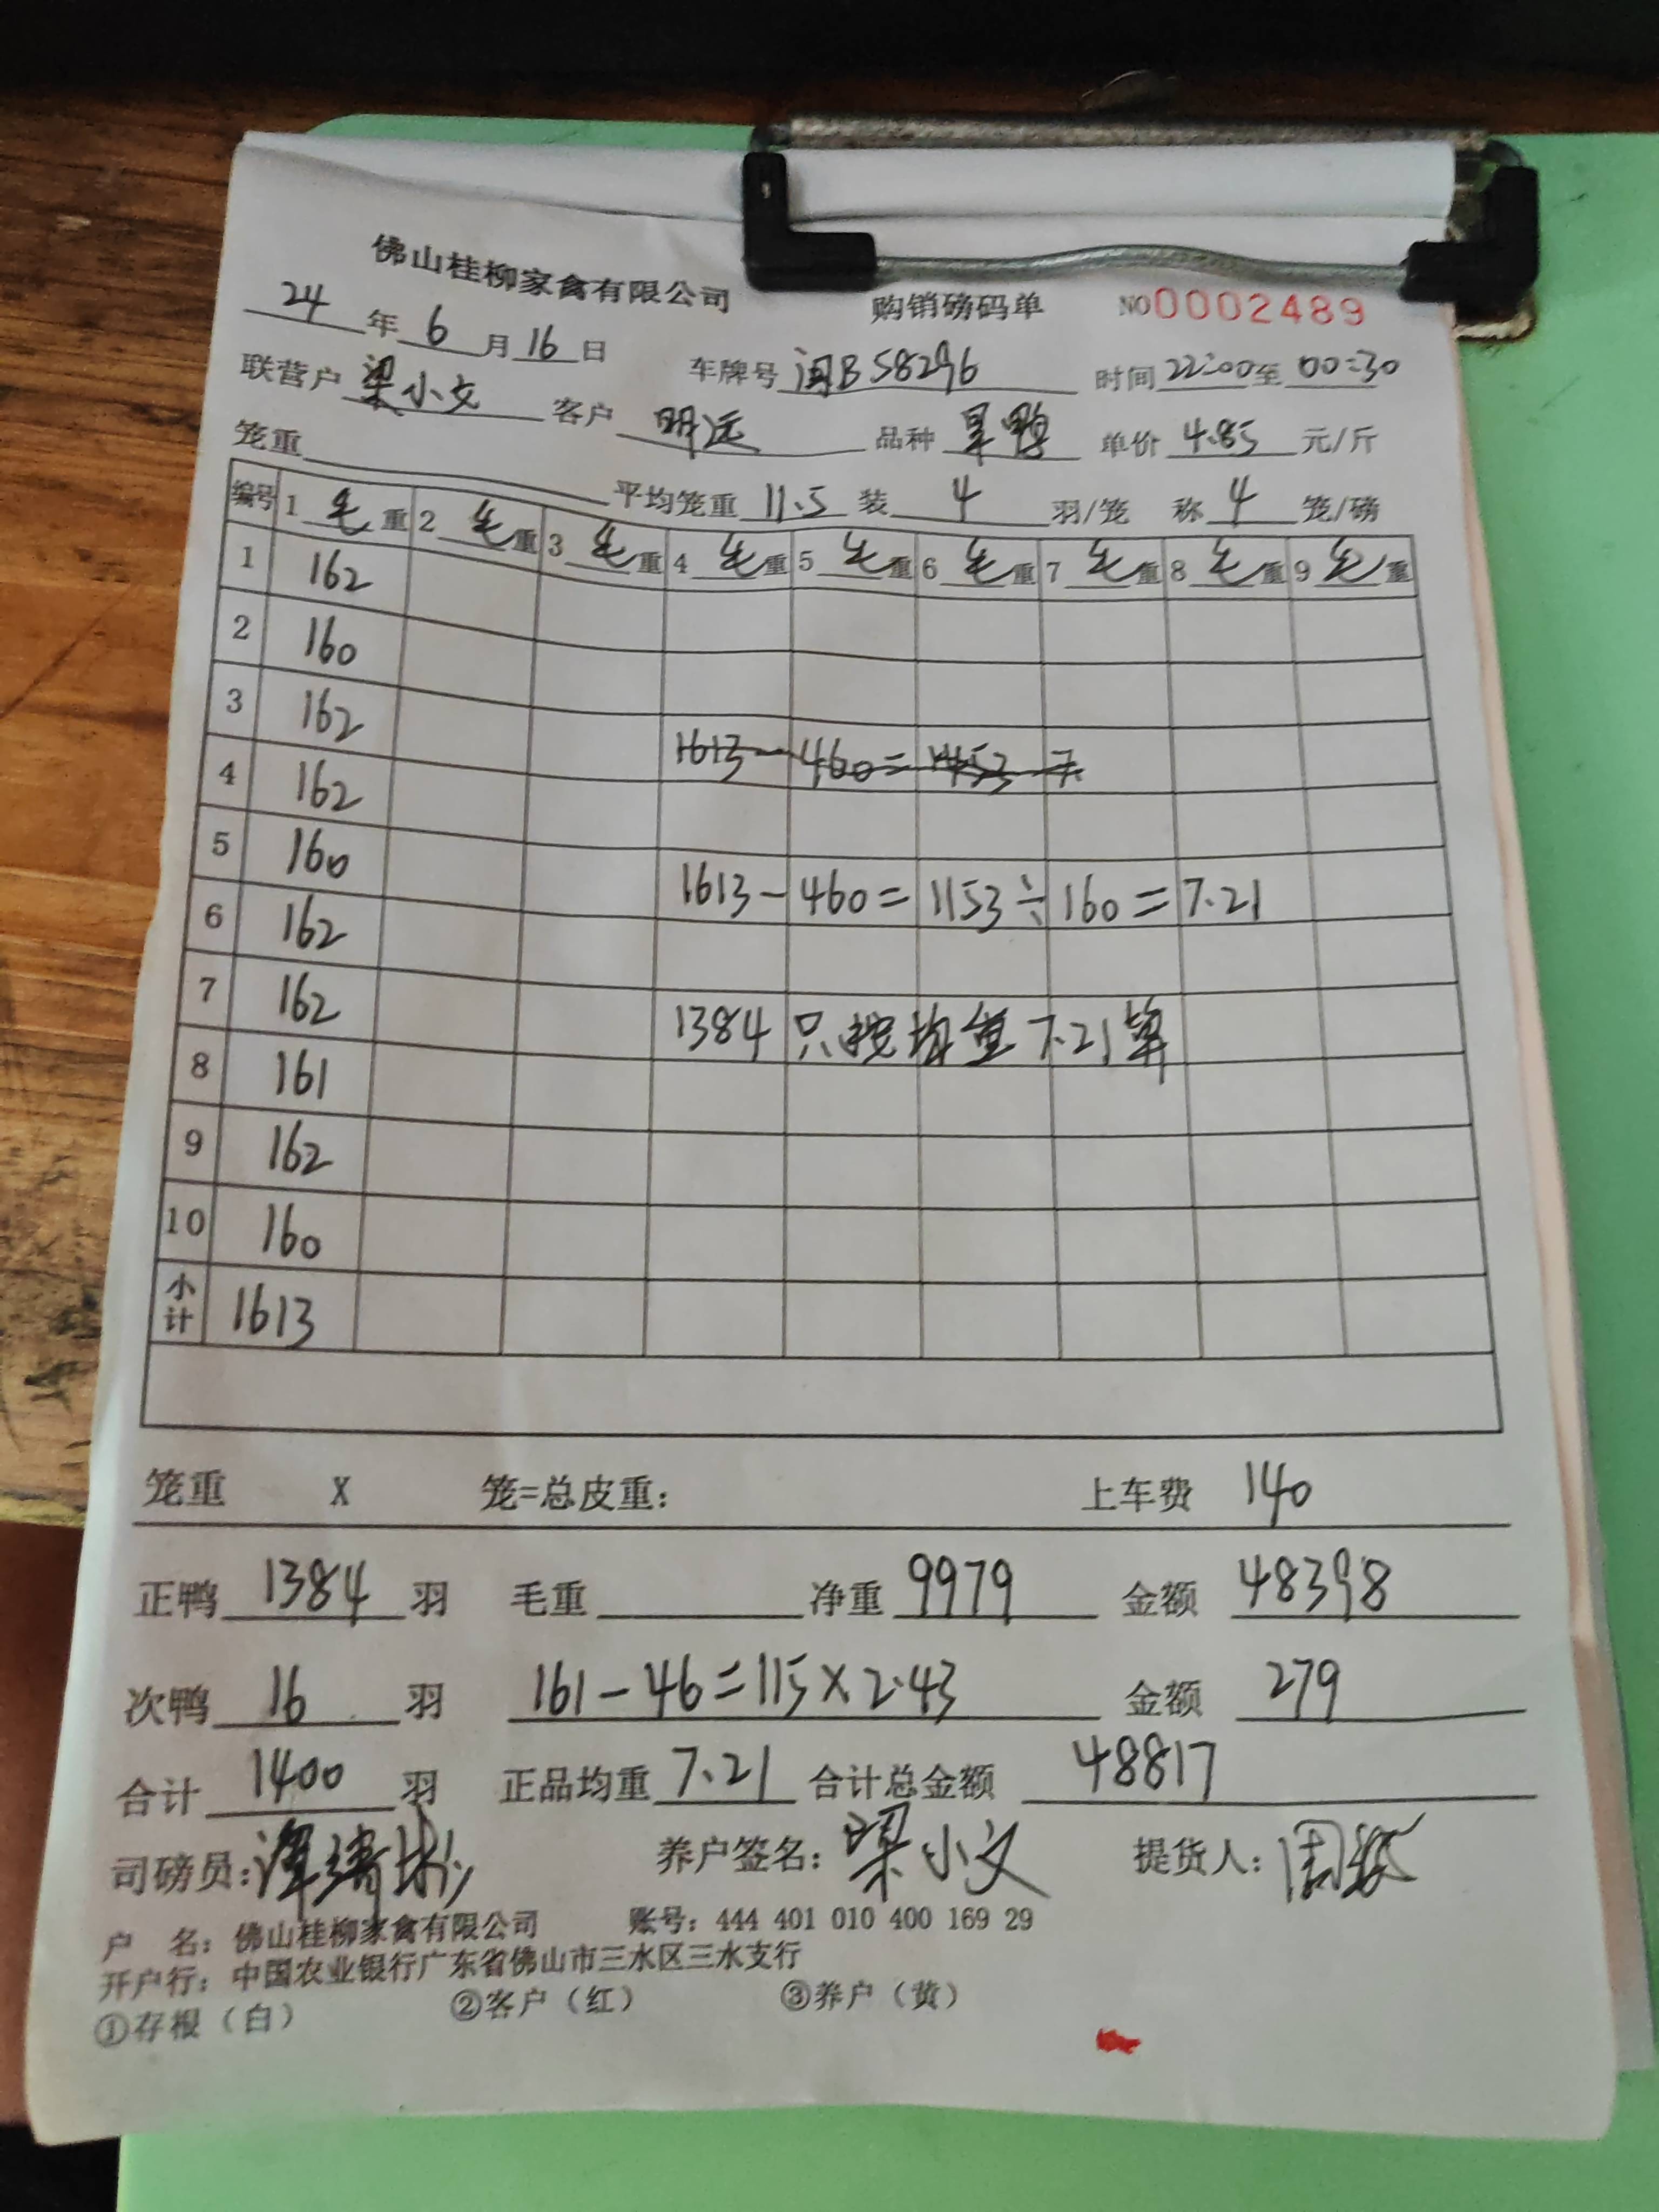 佛山桂柳家禽有限公司 购销磅码单 NO 0002489
24年6月16日
联营户 梁小文 车牌号 闽B58296 时间 22:00至00:30
客户 明远 品种 旱鸭 单价 4.85 元/斤
笼重 平均笼重 11.5 装 4 羽/笼 称 4 笼/磅
编号 1 毛重 2 毛重 3 毛重 4 毛重 5 毛重 6 毛重 7 毛重 8 毛重 9 毛重
1 162
2 160
3 162
1613-460=1453
4 162
5 160
1613-460=1153÷160=7.21
6 162
7 162
1384只按均重7.21算
8 161
9 162
10 160
小计 1613
笼重 X 笼=总皮重： 上车费 140
正鸭 1384 羽 毛重 净重 9979 金额 48398
次鸭 16 羽 161-46=115×2.43 金额 279
合计 1400 羽 正品均重 7.21 合计总金额 48817
司磅员： 养户签名：梁小文 提货人：周
户 名：佛山桂柳家禽有限公司 账号：444 401 010 400 169 29
开户行：中国农业银行广东省佛山市三水区三水支行
①存根（白） ②客户（红） ③养户（黄）